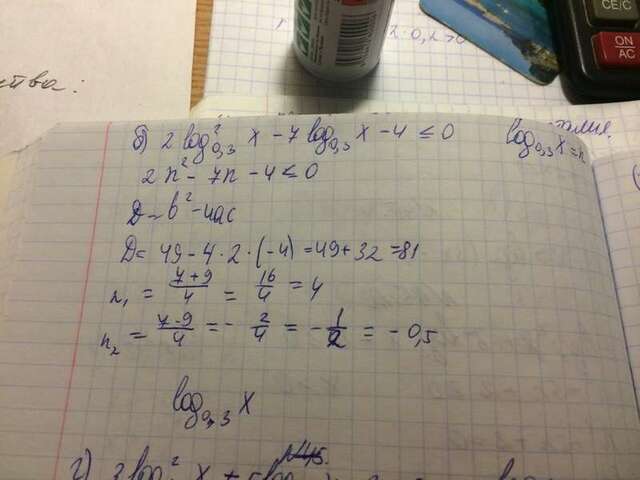 2·0,2>0
ства:
CE/C
ON/AC
б) 2log²₀,₃ x - 7log₀,₃ x - 4 ≤ 0 log₀,₃ x = n
2n² - 7n - 4 ≤ 0
D = b² - 4ac
D = 49 - 4·2·(-4) = 49 + 32 = 81
n₁ = (7+9)/4 = 16/4 = 4
n₂ = (7-9)/4 = -2/4 = -1/2 = -0,5
log₀,₃ x